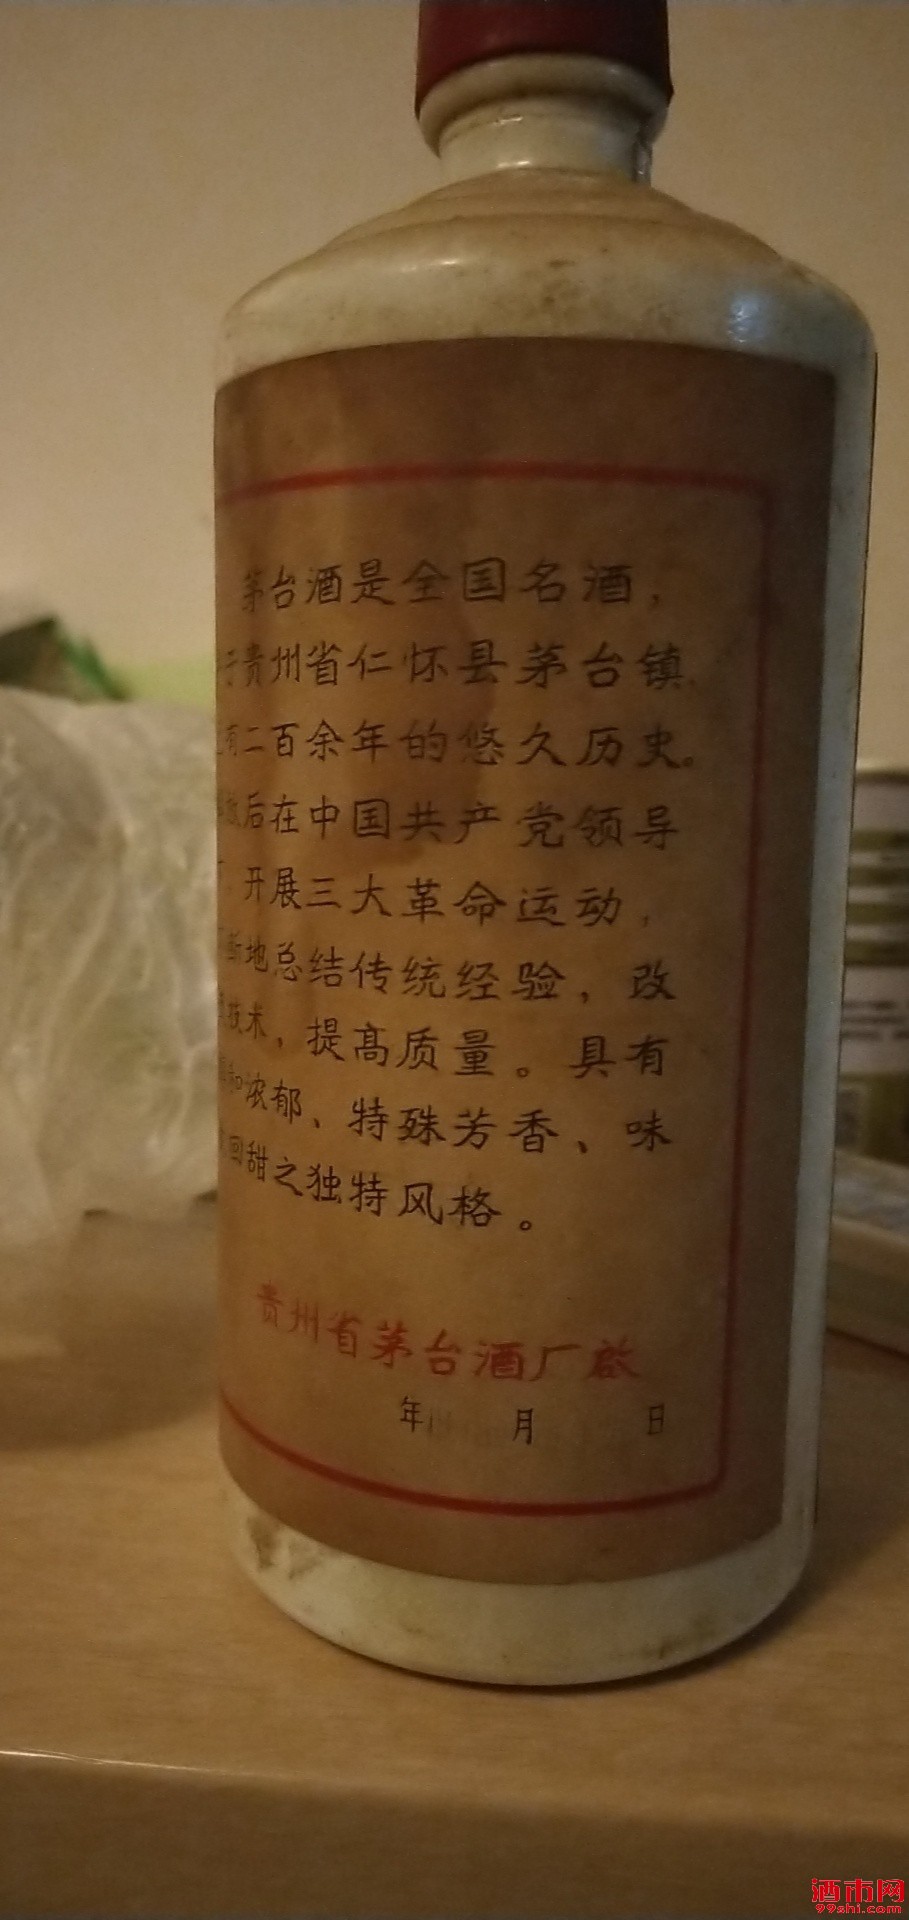 茅台酒是全国名酒，
于贵州省仁怀县茅台镇，
有二百余年的悠久历史。
放后在中国共产党领导
下，开展三大革命运动，
断地总结传统经验，改
技术，提高质量。具有
和浓郁、特殊芳香、味
回甜之独特风格。
贵州省茅台酒厂啟
年 月 日
酒市网
99shi.com